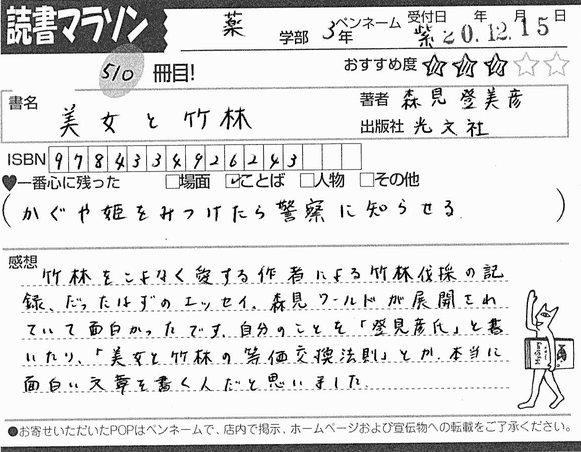 読書マラソン
薬 学部 3年 ペンネーム 紫 受付日 年 月 日 20.12.15
510 冊目!
おすすめ度 ★★★☆☆
書名 美女と竹林
著者 森見登美彦
出版社 光文社
ISBN 9784334926243
♥一番心に残った □場面 ☑ことば □人物 □その他
(かぐや姫をみつけたら警察に知らせる)
感想
竹林をこよなく愛する作者による竹林伐採の記
録、だったはずのエッセイ。森見ワールドが展開され
ていて面白かったです。自分のことを「登見彦氏」と書
いたり、「美女と竹林の等価交換法則」とか、本当に
面白い文章を書く人だと思いました。
●お寄せいただいたPOPはペンネームで、店内で掲示、ホームページおよび宣伝物への転載をご了承ください。